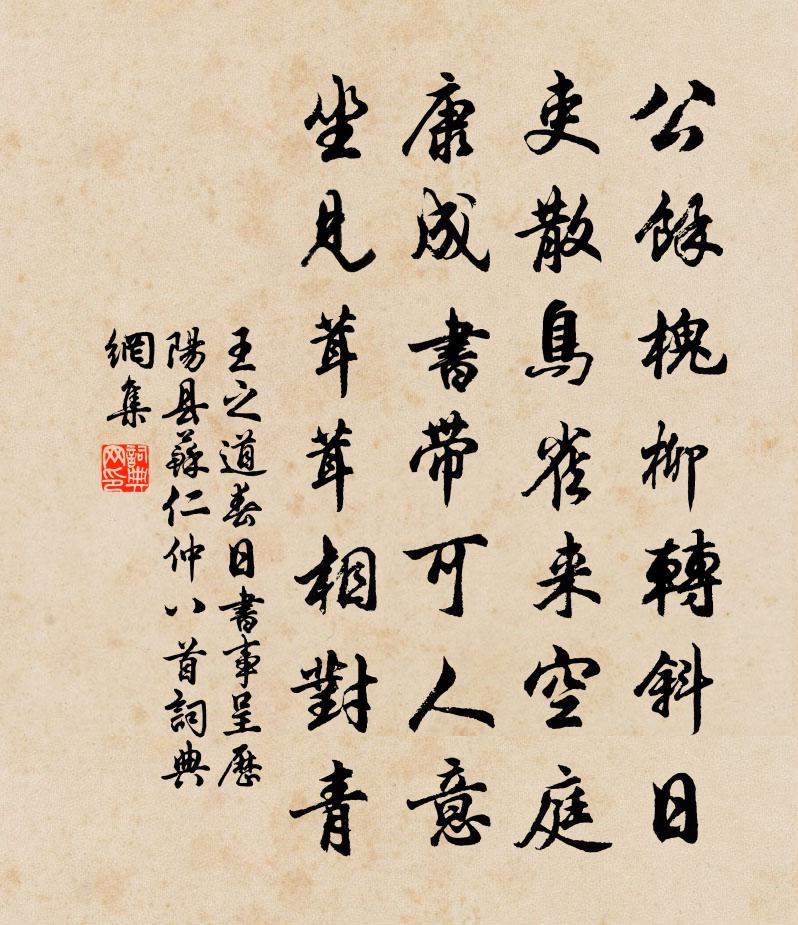 公餘槐柳轉斜日
吏散鳥雀来空庭
康成書帶可人意
坐見茸茸相對青
王之道春日書事呈歷
陽县蘇仁仲八首詞典
網集
詞典
网印